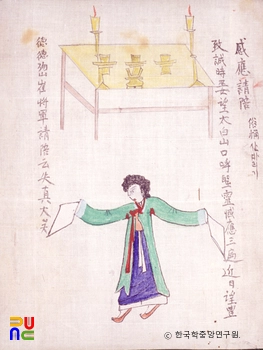 感應請陪 俗稱
致誠時 望太白山口呼聖靈感應三遍近日望豊
德德物山崔將軍請陪云失真大矣
© 한국학중앙연구원